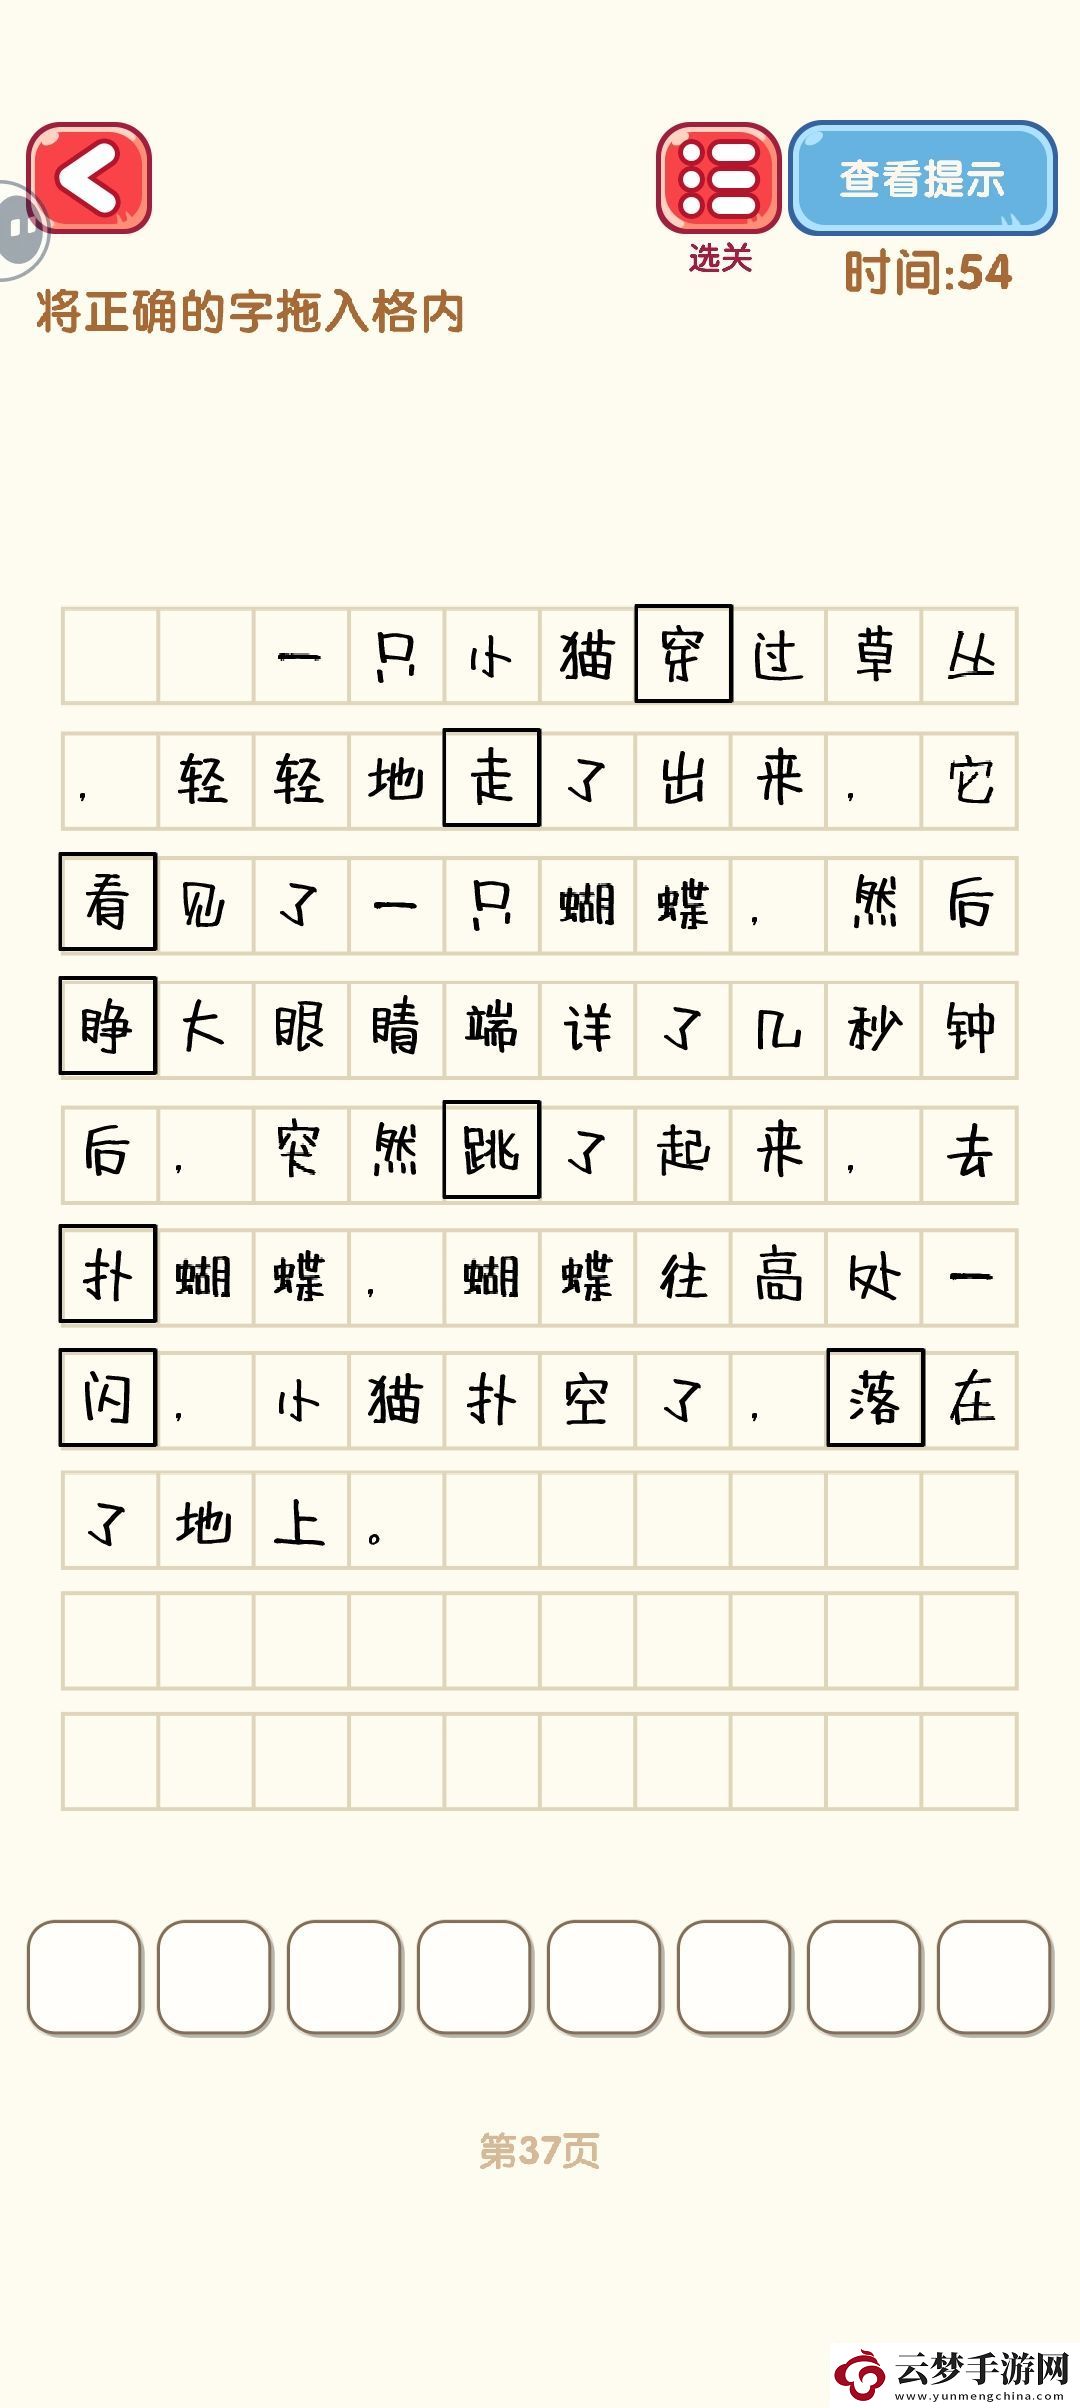 查看提示
选关
时间:54
将正确的字拖入格内
一只小猫穿过草丛
，轻轻地走了出来，它
看见了一只蝴蝶，然后
睁大眼睛端详了几秒钟
后，突然跳了起来，去
扑蝴蝶，蝴蝶往高处一
闪，小猫扑空了，落在
了地上。
第37页
云梦手游网
www.yunmengchina.com